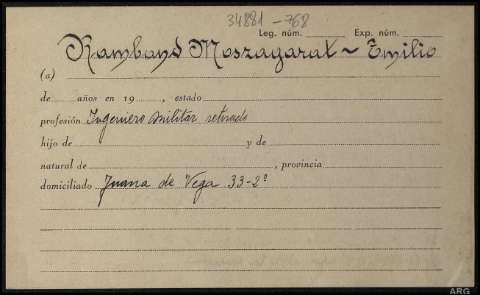 34881-768
Leg. núm. Exp. núm.
Rambaud Moszagarat - Emilio
(a)
de años en 19 , estado
profesión Ingeniero Militar retirado
hijo de y de
natural de , provincia
domiciliado Juana de Vega 33-2º
ARG